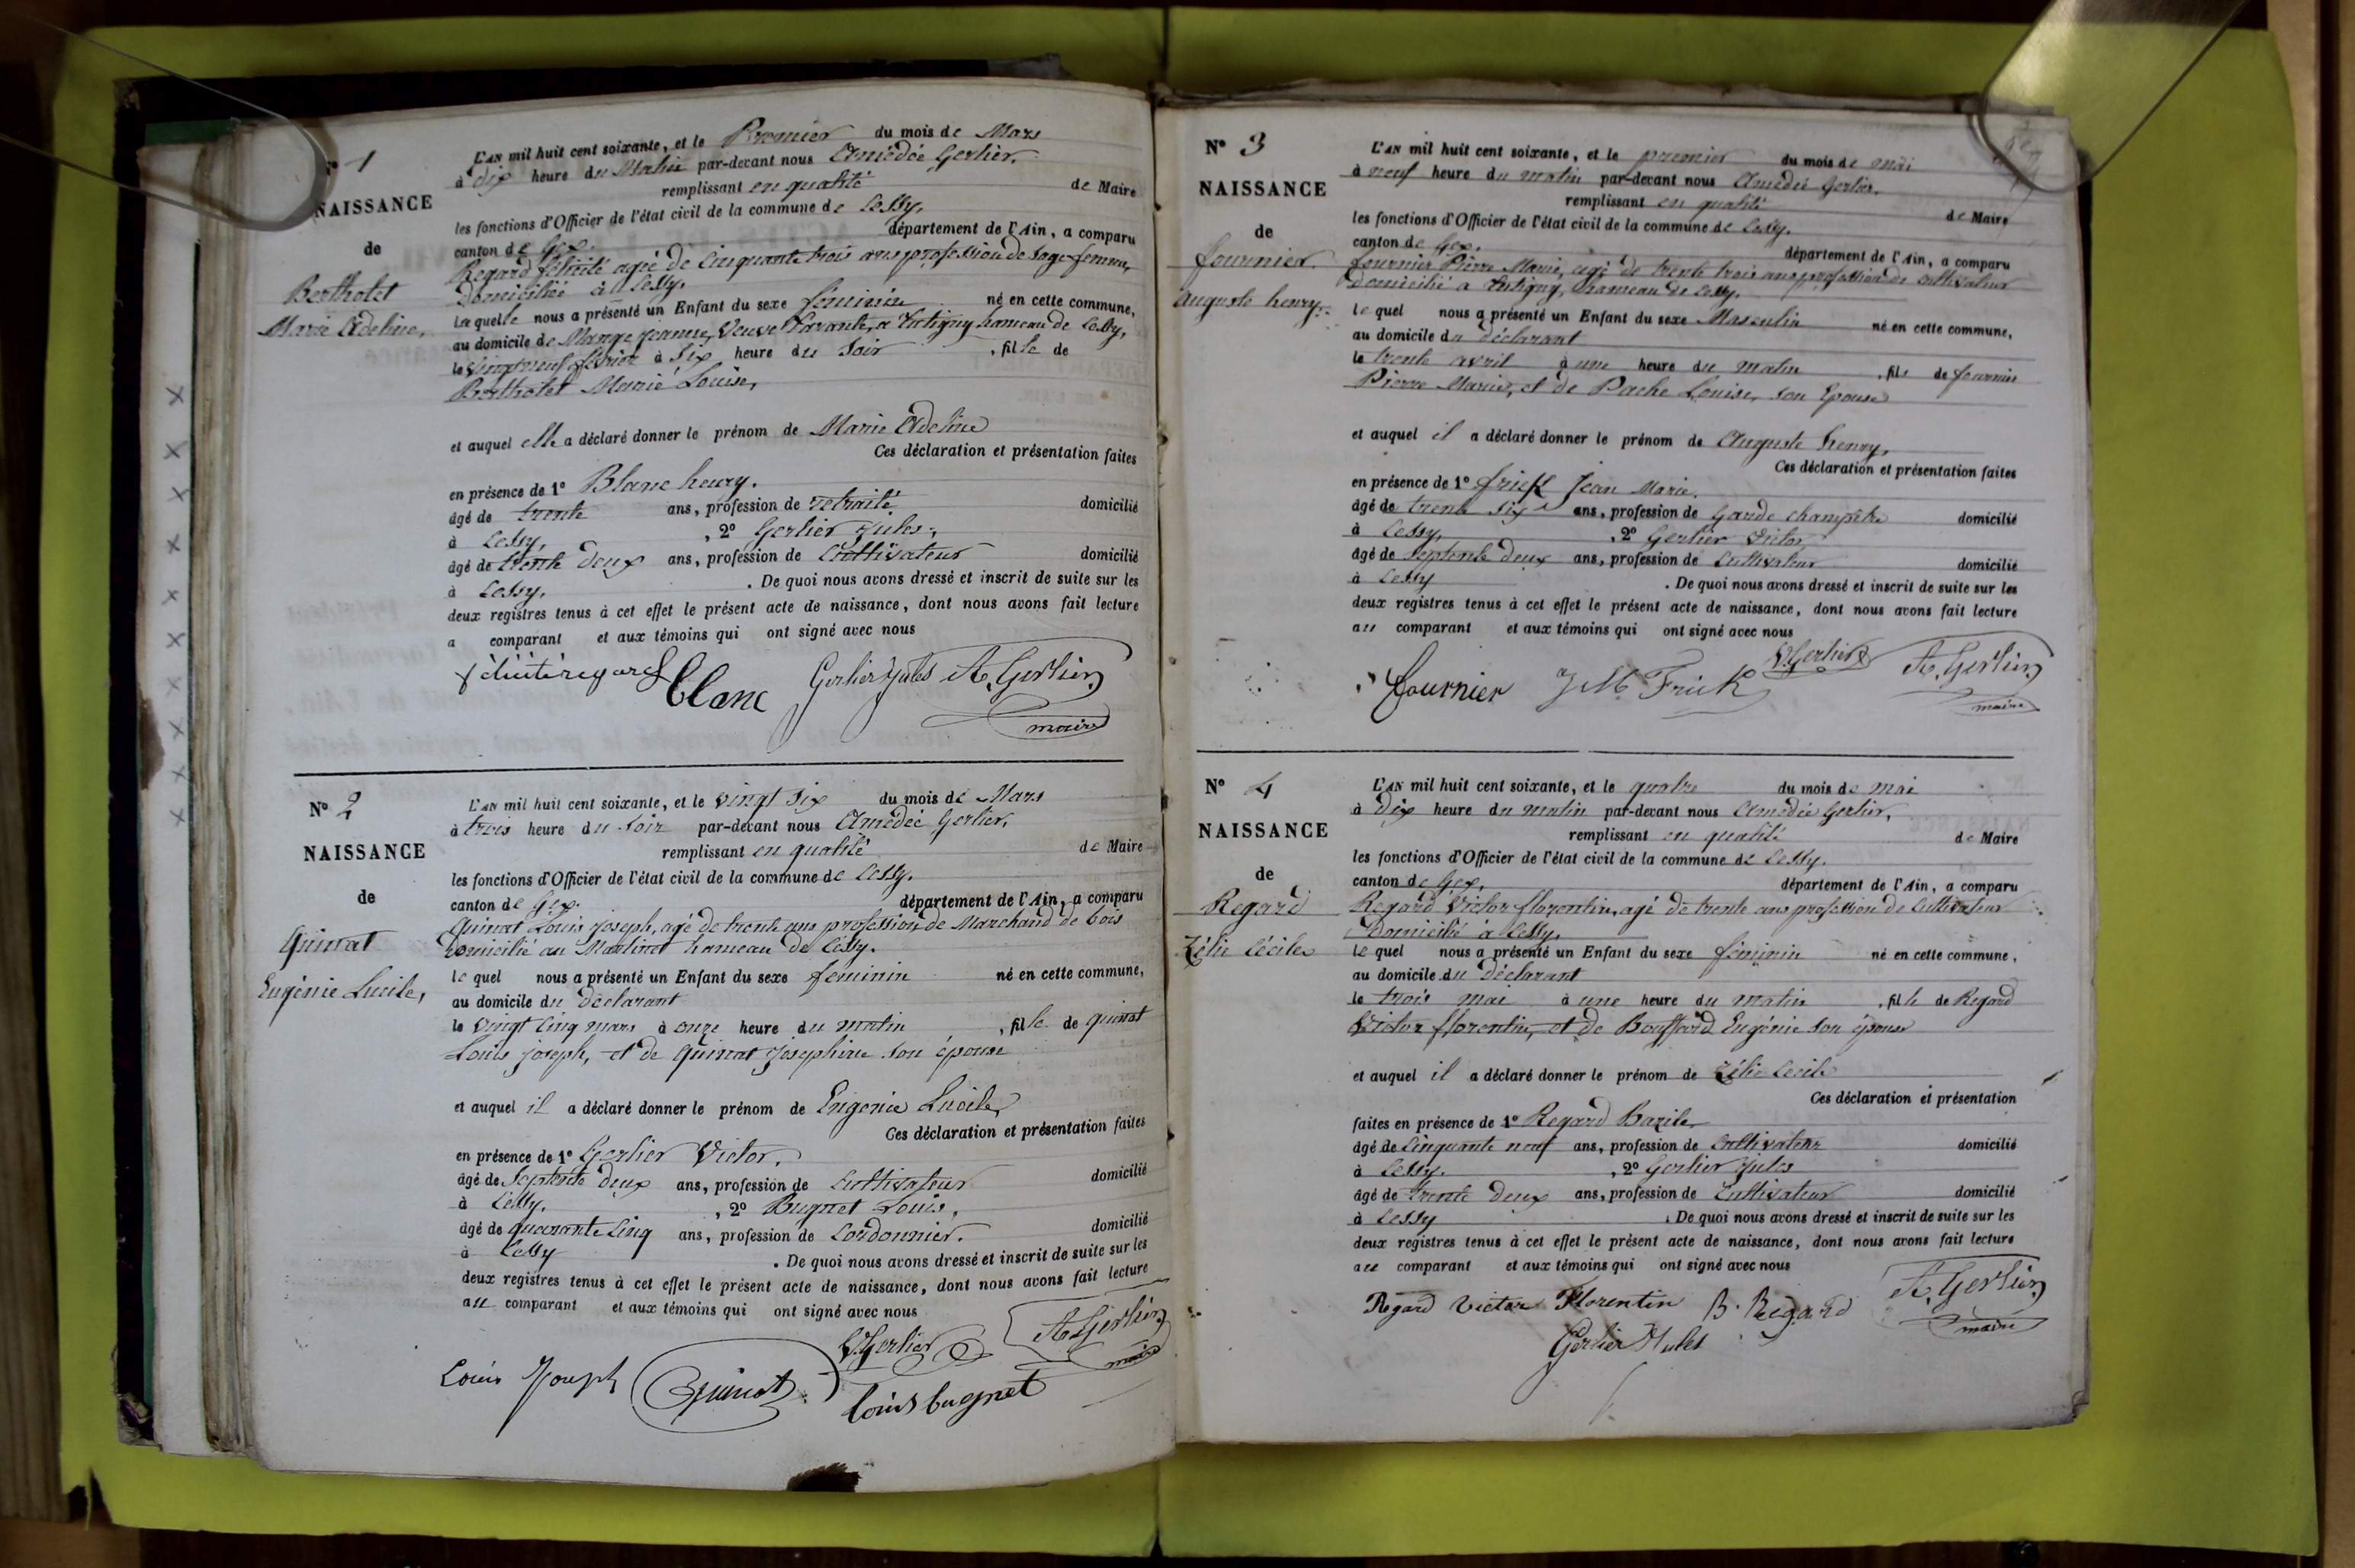 N° 1
NAISSANCE
de
Berthotet
Marie Adeline,
L'AN mil huit cent soixante, et le Premier du mois de Mars
à dix heure du Matin par-devant nous Amédée Gerlier.
remplissant en qualité de Maire
les fonctions d'Officier de l'état civil de la commune de Cessy,
canton de Gex. département de l'Ain, a comparu
Regard félicité agée de Cinquante trois ans profession de Sage femme,
Domiciliée à Cessy.
Laquelle nous a présenté un Enfant du sexe féminin né en cette commune,
au domicile de Mange jeanne, Veuve Lavante, a Tutigny hameau de Cessy,
le vingt neuf février à Six heure du Soir , fille de
Berthotet Marie Louise,
et auquel elle a déclaré donner le prénom de Marie Adeline
Ces déclaration et présentation faites
en présence de 1° Blanc henry.
âgé de trente ans, profession de retraité domicilié
à Cessy, , 2° Gerlier Jules,
âgé de trente deux ans, profession de Cultivateur domicilié
à Cessy. . De quoi nous avons dressé et inscrit de suite sur les
deux registres tenus à cet effet le présent acte de naissance, dont nous avons fait lecture
a comparant et aux témoins qui ont signé avec nous
félicité regard Blanc Gerlier Jules A. Gerlier
maire
N° 2
NAISSANCE
de
Quinat
Eugénie Lucile,
L'AN mil huit cent soixante, et le vingt six du mois de Mars
à trois heure du Soir par-devant nous Amédée Gerlier,
remplissant en qualité de Maire
les fonctions d'Officier de l'état civil de la commune de Cessy.
canton de Gex. département de l'Ain, a comparu
Quinat Louis joseph, agé de trente ans profession de Marchand de bois
domicilié au Martinet hameau de Cessy.
le quel nous a présenté un Enfant du sexe féminin né en cette commune,
au domicile du déclarant
le vingt cinq mars à onze heure du matin , fille de quinat
Louis joseph, et de quinat josephine son épouse
et auquel il a déclaré donner le prénom de Eugenie Lucile,
Ces déclaration et présentation faites
en présence de 1° Gerlier Victor,
âgé de Septente deux ans, profession de Cultivateur domicilié
à Cessy, , 2° Bugnet Louis,
âgé de quarante cinq ans, profession de Cordonnier. domicilié
à Cessy . De quoi nous avons dressé et inscrit de suite sur les
deux registres tenus à cet effet le présent acte de naissance, dont nous avons fait lecture
au comparant et aux témoins qui ont signé avec nous
V. Gerlier A. Gerlier
maire
Louis Joseph Quinat louis bugnet
N° 3
NAISSANCE
de
fournier
auguste henry,
L'AN mil huit cent soixante, et le premier du mois de mai
à neuf heure du matin par-devant nous Amédée Gerlier.
remplissant en qualité de Maire
les fonctions d'Officier de l'état civil de la commune de Cessy.
canton de Gex. département de l'Ain, a comparu
fournier Pierre Marie, agé de trente trois ans profession de cultivateur
domicilié a tutigny, hameau de Cessy.
le quel nous a présenté un Enfant du sexe Masculin né en cette commune,
au domicile du déclarant
le trente avril à une heure du matin , fils de fournier
Pierre Marie, et de Pache Louise, son Epouse
et auquel il a déclaré donner le prénom de Auguste henry,
Ces déclaration et présentation faites
en présence de 1° frick Jean Marie.
âgé de trente six ans, profession de Garde champêtre domicilié
à Cessy, , 2° Gerlier Victor
âgé de Septente deux ans, profession de Cultivateur domicilié
à Cessy . De quoi nous avons dressé et inscrit de suite sur les
deux registres tenus à cet effet le présent acte de naissance, dont nous avons fait lecture
au comparant et aux témoins qui ont signé avec nous
V. Gerlier A. Gerlier
fournier J M Frick maire
N° 4
NAISSANCE
de
Regard
Zélie Cécile
L'AN mil huit cent soixante, et le quatre du mois de mai
à dix heure du matin par-devant nous Amédée Gerlier,
remplissant en qualité de Maire
les fonctions d'Officier de l'état civil de la commune de Cessy.
canton de Gex, département de l'Ain, a comparu
Regard Victor florentin, agé de trente ans profession de Cultivateur
Domicilié à Cessy,
le quel nous a présenté un Enfant du sexe féminin né en cette commune,
au domicile du déclarant
le trois mai à une heure du matin , fille de Regard
Victor florentin, et de Bouffard Eugénie son épouse
et auquel il a déclaré donner le prénom de Zélie Cecile
Ces déclaration et présentation
faites en présence de 1° Regard Bazile
âgé de Cinquante neuf ans, profession de Cultivateur domicilié
à Cessy. , 2° Gerlier Jules
âgé de trente deux ans, profession de Cultivateur domicilié
à Cessy . De quoi nous avons dressé et inscrit de suite sur les
deux registres tenus à cet effet le présent acte de naissance, dont nous avons fait lecture
au comparant et aux témoins qui ont signé avec nous
Regard Victor Florentin B. Regard A. Gerlier
Gerlier Jules maire